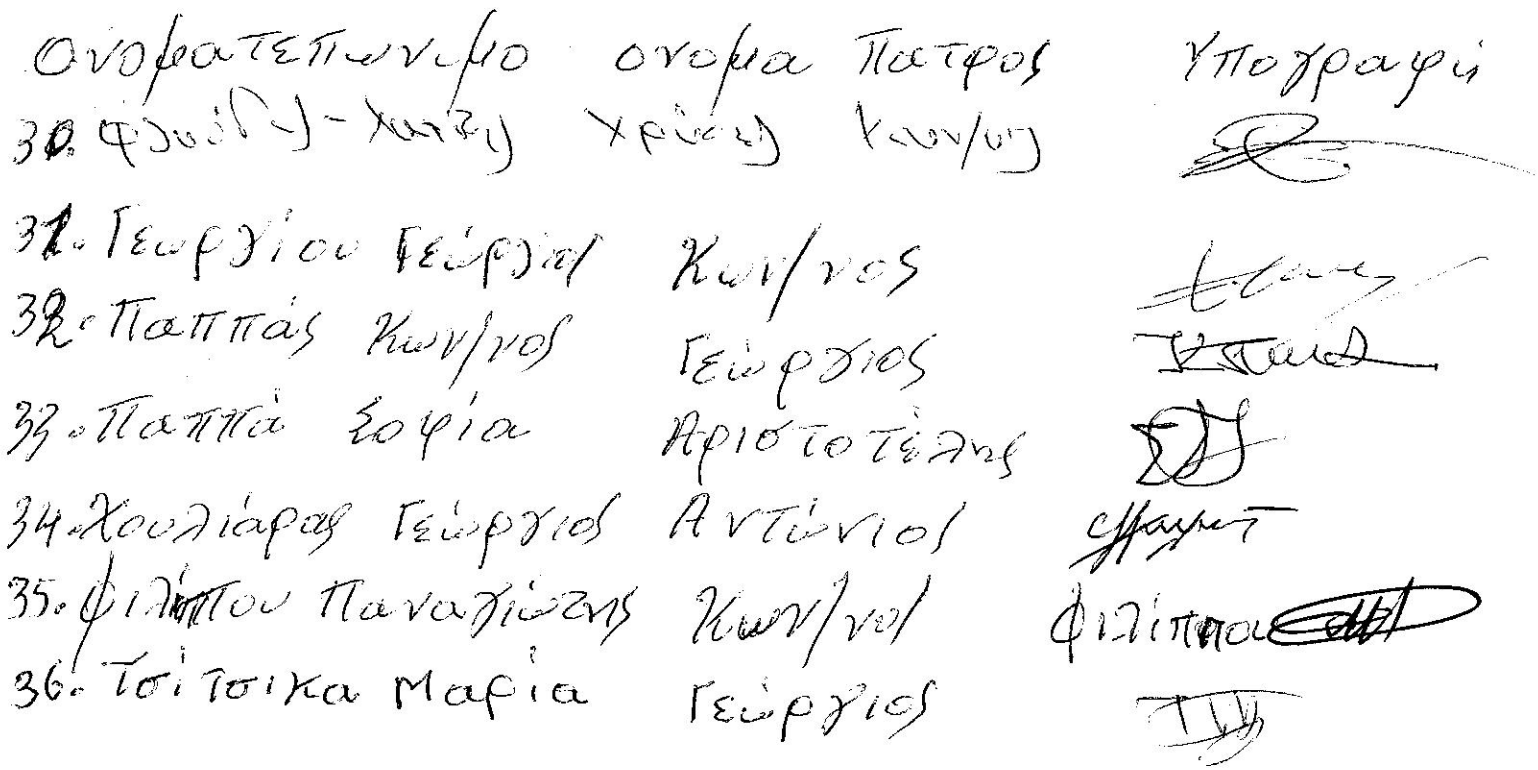 Ονοματεπωνιμο ονομα Πατρος Υπογραφή
30.
31. Γεωργίου Γεώργιος Κων/νος
32. Παππάς Κων/νος Γεώργιος
33. Παππά Σοφία Αριστοτέλης
34. Χουλιάρας Γεώργιος Αντώνιος
35. Φιλίππου Παναγιώτης Κων/νος
36. Τσίτσικα Μαρία Γεώργιος